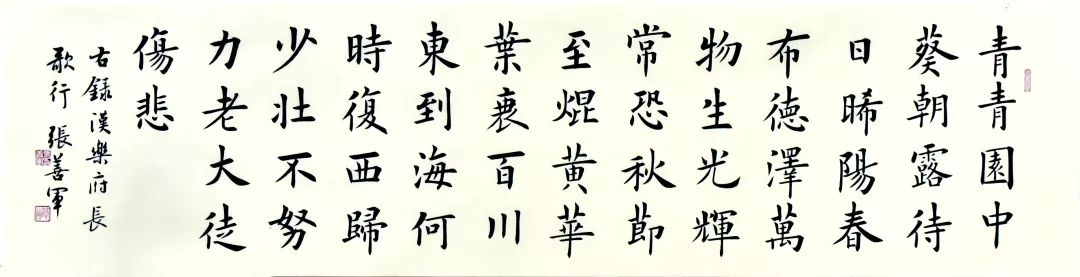 青青園中
葵朝露待
日晞陽春
布德澤萬
物生光輝
常恐秋節
至焜黃華
葉衰百川
東到海何
時復西歸
少壯不努
力老大徒
傷悲
右錄漢樂府長
歌行 張善軍